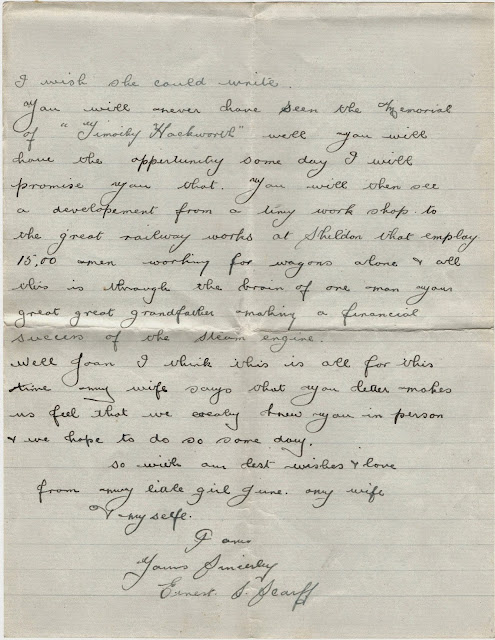 I wish she could write.
You will never have seen the Memorial
of "Timothy Hackworth" well you will
have the oppertunity some day I will
promise you that. You will then see
a developement from a tiny work shop. to
the great railway works at Shildon that employ
15,00 men working for wagons alone & all
this is through the brain of one man your
great great grandfather making a financial
success of the steam engine.
Well Joan I think this is all for this
time my wife says that you letter makes
us feel that we knew you in person
& we hope to do so some day.
so with our best wishes & love
from my little girl June. my wife
& myself.
I am
Yours Sincerly
Ernest. S. Scarff